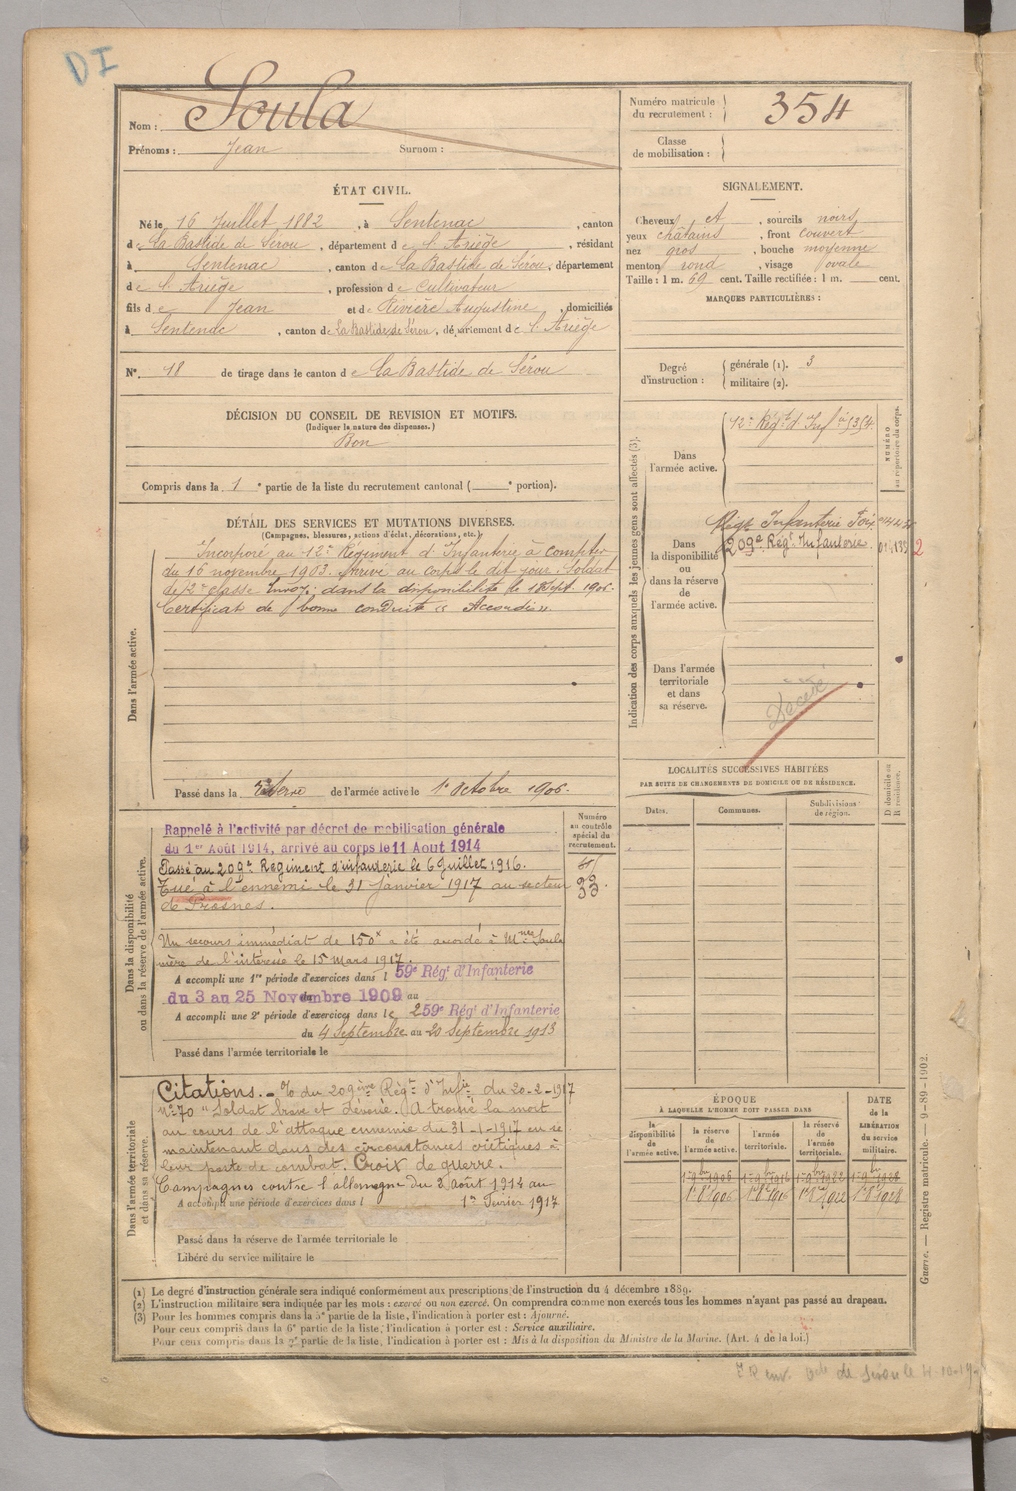 DI
Nom : Soula
Prénoms : Jean Surnom :
Numéro matricule du recrutement : 354
Classe de mobilisation :
ÉTAT CIVIL.
Né le 16 Juillet 1882, à Sentenac, canton
de La Bastide de Sérou, département de l'Ariège, résidant
à Sentenac, canton de La Bastide de Sérou, département
de l'Ariège, profession de Cultivateur
fils de Jean et de Rivière Augustine, domiciliés
à Sentenac, canton de La Bastide de Sérou, département de l'Ariège
N° 18 de tirage dans le canton de La Bastide de Sérou
SIGNALEMENT.
Cheveux et, sourcils noirs
yeux châtains, front couvert
nez gros, bouche moyenne
menton rond, visage ovale
Taille : 1 m. 69 cent. Taille rectifiée : 1 m. cent.
MARQUES PARTICULIÈRES :
Degré d'instruction : générale (1). 3
militaire (2).
DÉCISION DU CONSEIL DE REVISION ET MOTIFS.
(Indiquer la nature des dispenses.)
Bon
Compris dans la 1e partie de la liste du recrutement cantonal ( e portion).
DÉTAIL DES SERVICES ET MUTATIONS DIVERSES.
(Campagnes, blessures, actions d'éclat, décorations, etc.)
Dans l'armée active.
Incorporé au 12e Régiment d'Infanterie à compter
du 16 novembre 1903. Arrivé au corps le dit jour. Soldat
de 2e classe. Envoyé dans la disponibilité le 18 Sept. 1906.
Certificat de bonne conduite « Accordé »
Passé dans la réserve de l'armée active le 1er Octobre 1906.
Indication des corps auxquels les jeunes gens sont affectés (3).
NUMÉRO au répertoire du corps.
Dans l'armée active.
12e Régt d'Inf
Dans la disponibilité ou dans la réserve de l'armée active.
Régt Infanterie Foix
209e Régt Infanterie
Dans l'armée territoriale et dans sa réserve.
Décédé
LOCALITÉS SUCCESSIVES HABITÉES
PAR SUITE DE CHANGEMENTS DE DOMICILE OU DE RÉSIDENCE.
Dates. Communes. Subdivisions de région. D domicile ou R résidence.
Dans la disponibilité ou dans la réserve de l'armée active.
Numéro au contrôle spécial du recrutement.
Rappelé à l'activité par décret de mobilisation générale
du 1er Août 1914, arrivé au corps le 11 Aout 1914
Passé au 209e Régiment d'infanterie le 6 Juillet 1916.
Tué à l'ennemi le 31 Janvier 1917 au secteur
de Fresnes.
33.
Un secours immédiat de 150 a été accordé à Mme Soula
mère de l'intéressé le 15 Mars 1917.
A accompli une 1re période d'exercices dans l 59e Régt d'Infanterie
du 3 au 25 Novembre 1909 au
A accompli une 2e période d'exercices dans le 259e Régt d'Infanterie
du 4 Septembre au 20 Septembre 1913
Passé dans l'armée territoriale le
Dans l'armée territoriale et dans sa réserve.
Citations. - O/o du 209ème Régt d'Infie du 20-2-1917
n° 70 "Soldat brave et dévoué. A trouvé la mort
au cours de l'attaque ennemie du 31-1-1917 en se
maintenant dans des circonstances critiques à
leur poste de combat. Croix de guerre.
Campagnes contre l'allemagne du 2 août 1914 au
A accompli une période d'exercices dans l 1er Février 1917
Passé dans la réserve de l'armée territoriale le
Libéré du service militaire le
ÉPOQUE
À LAQUELLE L'HOMME DOIT PASSER DANS
la disponibilité de l'armée active. la réserve de l'armée active. l'armée territoriale. la réserve de l'armée territoriale.
DATE de la LIBÉRATION du service militaire.
1er 9bre 1906 1er 9bre 1916 1er 9bre 1922 1er 9bre 1928
1er 8bre 1906 1er 8bre 1916 1er 8bre 1922 1er 8bre 1928
(1) Le degré d'instruction générale sera indiqué conformément aux prescriptions de l'instruction du 4 décembre 1889.
(2) L'instruction militaire sera indiquée par les mots : exercé ou non exercé. On comprendra comme non exercés tous les hommes n'ayant pas passé au drapeau.
(3) Pour les hommes compris dans la 5e partie de la liste, l'indication à porter est : Ajourné.
Pour ceux compris dans la 6e partie de la liste, l'indication à porter est : Service auxiliaire.
Pour ceux compris dans la 7e partie de la liste, l'indication à porter est : Mis à la disposition du Ministre de la Marine. (Art. 4 de la loi.)
Guerre. — Registre matricule. — 9-89-1902.